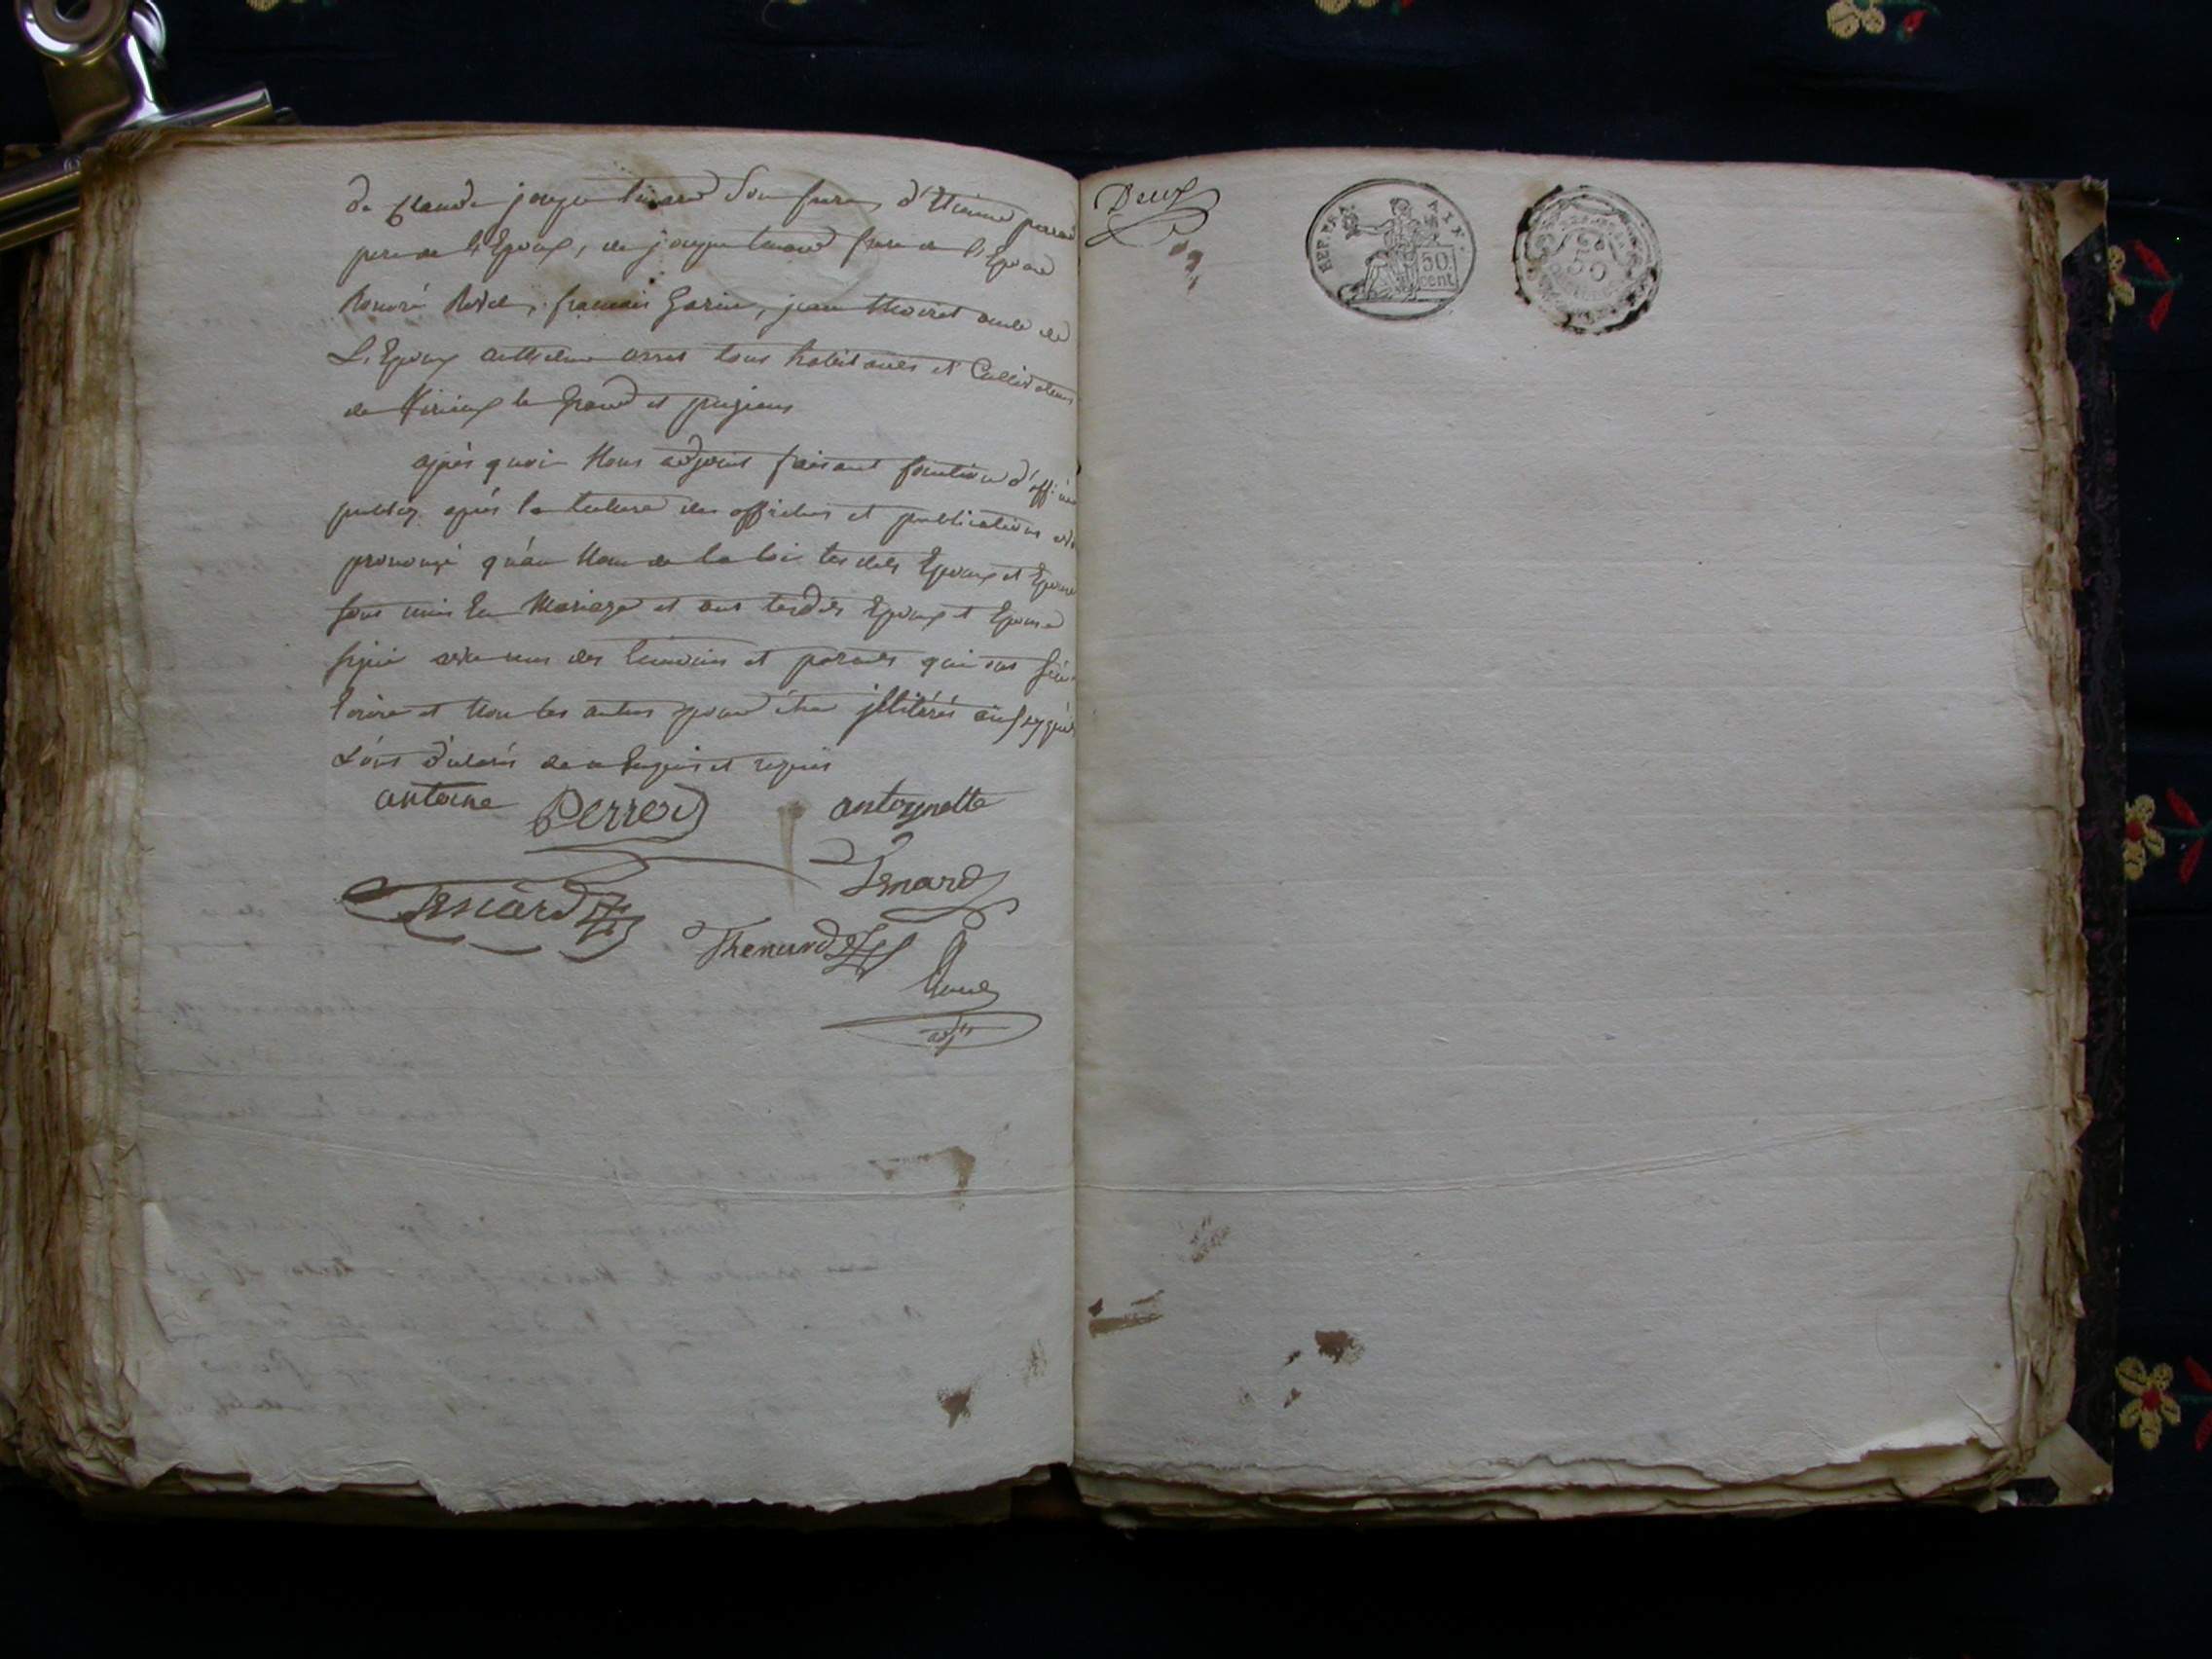 de Claude joseph tenard son frere, d'Etienne perrod
pere de l'Epoux, de joseph tenard frere de l'Epouse
honoré Revel, francois Garin, jean Moiret oncle de
L'Epoux anthelme arret tous habitants et Cultivateurs
de Virieux le Grand et pugieux
après quoi Nous adjoint faisant fonction d'officier
public après la lecture des affiches et publications avons
prononcé qu'au Nom de la loi les dits Epoux et Epouse
sont unis En Mariage et ont lesdits Epoux et Epouse
signé avec ceux des temoins et parents qui ont
et Non les autres pour être illitérés
antoine Perrod antoynette
Tenard
Tenard
Thenard
adjt
Deux
REP. FRA. AIN.
50
cent
50